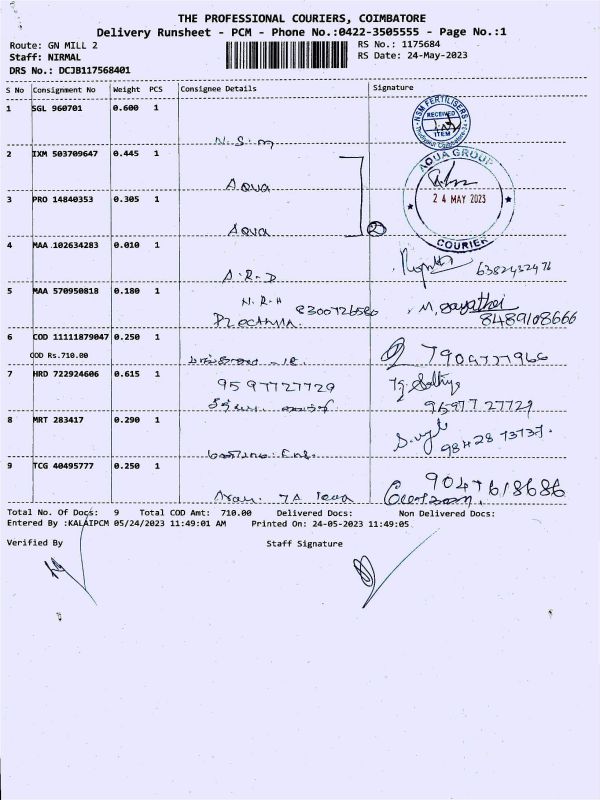 THE PROFESSIONAL COURIERS, COIMBATORE
Delivery Runsheet - PCM - Phone No.:0422-3505555 - Page No.:1
Route: GN MILL 2
RS No.: 1175684
Staff: NIRMAL
RS Date: 24-May-2023
DRS No.: DCJB117568401
S No Consignment No Weight PCS Consignee Details Signature
1 SGL 960701 0.600 1
NSM FERTILISERS
RECEIVED
ITEM
N.S.M
2 IXM 503709647 0.445 1
AQUA GROUP
Aqua
3 PRO 14840353 0.305 1
24 MAY 2023
Aqua
2
COURIER
4 MAA 102634283 0.010 1
A.R.D 6382432476
5 MAA 570950818 0.180 1
N.R.H 8300726586
M. Gayathri
8489108666
6 COD 11111879047 0.250 1
COD Rs.710.00
7 HRD 722924606 0.615 1
9597727729
Sathya
9597727729
8 MRT 283417 0.290 1
9 TCG 40495777 0.250 1
9047618686
Total No. Of Docs: 9 Total COD Amt: 710.00 Delivered Docs: Non Delivered Docs:
Entered By :KALAIPCM 05/24/2023 11:49:01 AM Printed On: 24-05-2023 11:49:05
Verified By Staff Signature